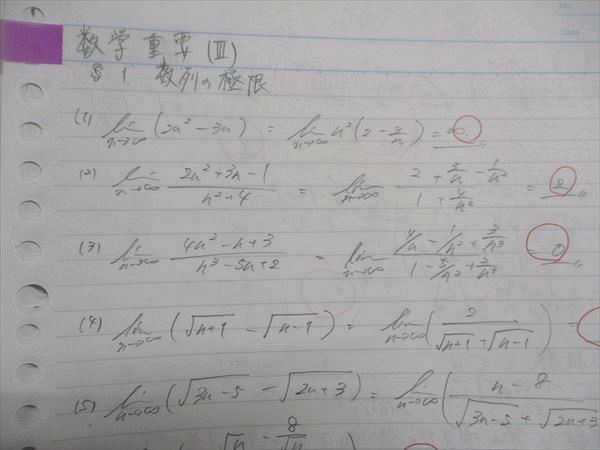 No.
Date
数学 重要 (III)
§ 1. 数列の極限
(1) lim n→∞ (2n² - 3n) = lim n→∞ n²(2 - 3/n) = ∞
(2) lim n→∞ (2n² + 3n - 1)/(n² + 4) = lim n→∞ (2 + 3/n - 1/n²)/(1 + 4/n²) = 2
(3) lim n→∞ (4n² - n + 3)/(n³ - 5n + 2) = lim n→∞ (4/n - 1/n² + 3/n³)/(1 - 5/n² + 2/n³) = 0
(4) lim n→∞ (√(n+1) - √(n-1)) = lim n→∞ (2/(√(n+1) + √(n-1))) =
(5) lim n→∞ (√(3n-5) - √(2n+3)) = lim n→∞ ((n - 8)/(√(3n-5) + √(2n+3)
√n - 8/√n